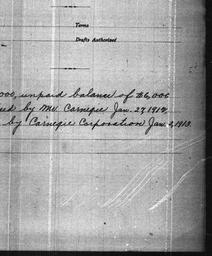 Terms
Drafts Authorized
000, unpaid balance of $6,000
ed by Mr. Carnegie Jan. 27, 1912,
by Carnegie Corporation Jan. 2, 1913.